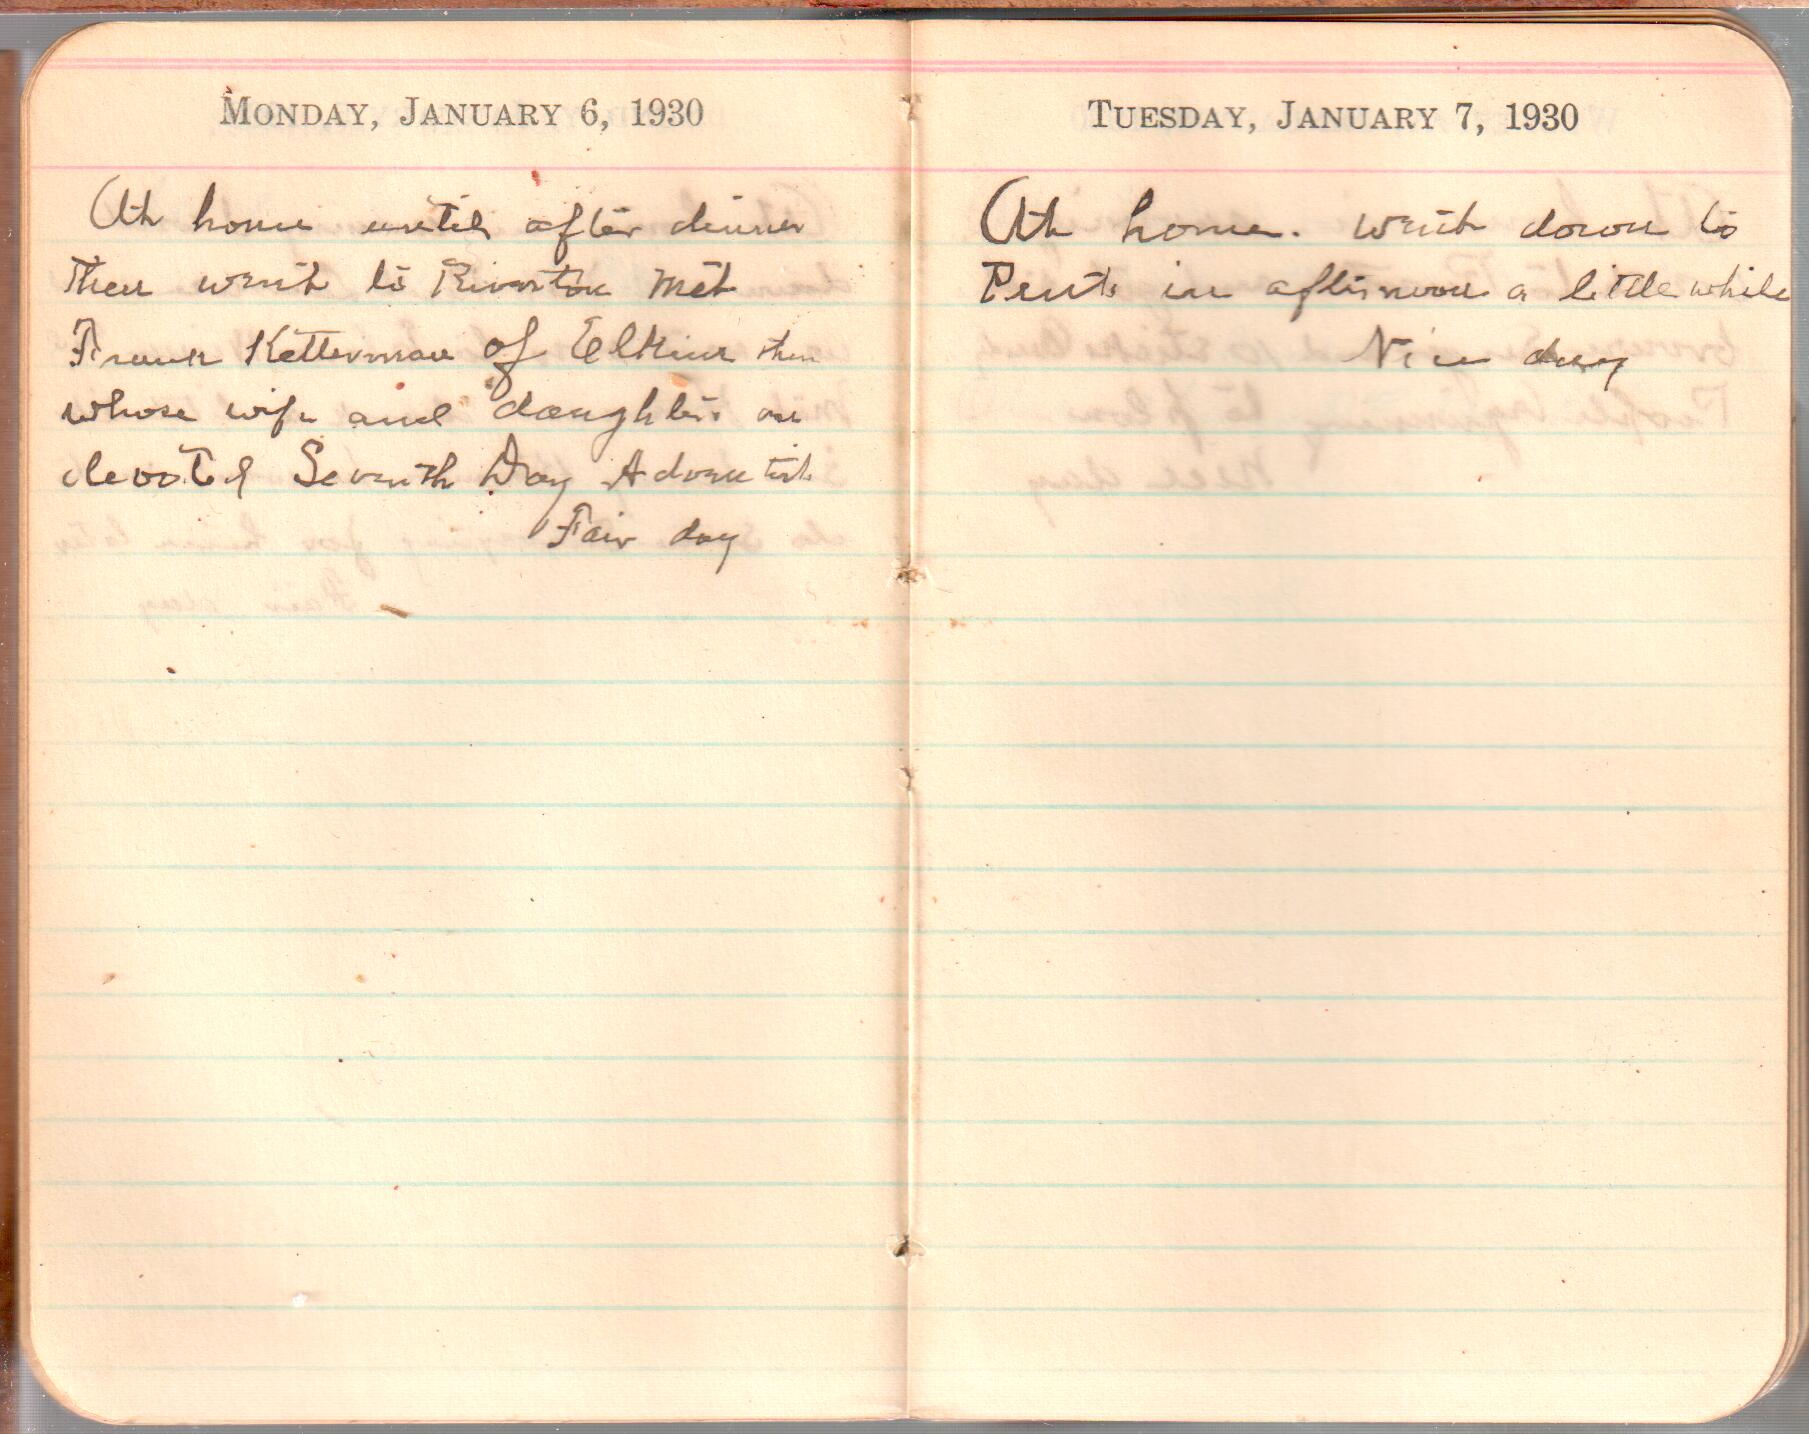 MONDAY, JANUARY 6, 1930
At home until after dinner
Then went to Riverton Met
Frank Ketterman of Elkins then
whose wife and daughter are
devoted Seventh Day Adventist
Fair day
TUESDAY, JANUARY 7, 1930
At home. went down to
in afternoon a little while
Nice day